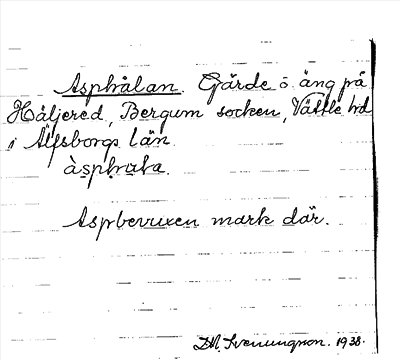 Asphålan. Gärde o. äng på
Håljered, Bergum socken, Vättle hd
i Älfsborgs län.
àsphåla.
Aspbevuxen mark där.
D.M. Svenungson. 1938.